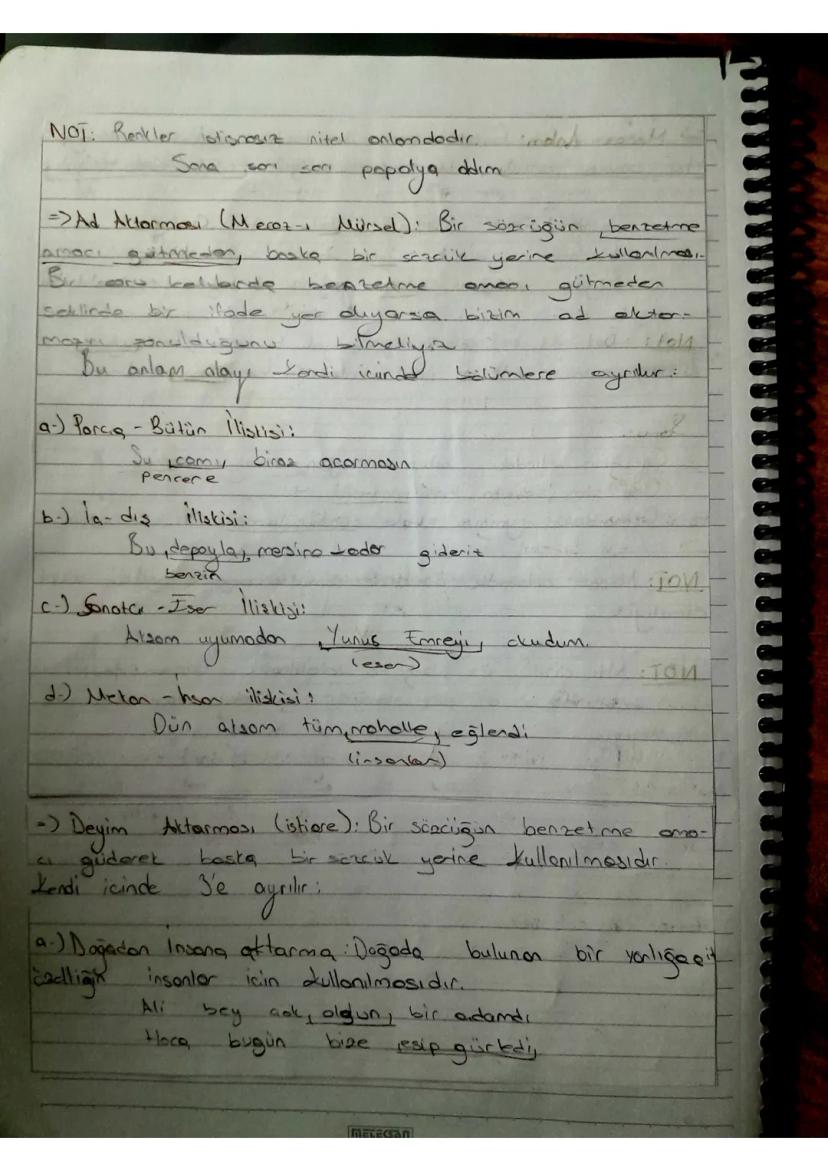 NOT: Renkler istisnasız nitel anlamdadır.
Sana sarı sarı papatya aldım
=> Ad Aktarması (Mecaz-ı Mürsel): Bir sözcüğün benzetme
amacı gütmeden, başka bir sözcük yerine kullanılması.
Bu soru kalıbında benzetme amacı gütmeden
şeklinde bir ifade yer alıyorsa bizim ad aktar-
masını sorulduğunu bilmeliyiz
Bu anlam olayı kendi içinde bölümlere ayrılır:
a-) Parça - Bütün İlişkisi:
Şu camı biraz açarmısın
pencere
b-) İç - dış ilişkisi:
Bu depoyla mersine kadar gideriz
benzin
c-) Sanatçı - Eser İlişkisi:
Akşam uyumadan Yunus Emreyi okudum.
(eser)
d-) Mekan - İnsan ilişkisi:
Dün akşam tüm mahalle eğlendi
(insanlar)
=) Deyim Aktarması (istiare): Bir sözcüğün benzetme ama-
cı güderek başka bir sözcük yerine kullanılmasıdır.
Kendi içinde 3'e ayrılır:
a-) Doğadan İnsana aktarma: Doğada bulunan bir varlığa ait
özelliğin insanlar için kullanılmasıdır.
Ali bey çok olgun bir adamdı
Hoca bugün bize esip gürledi
metecsan